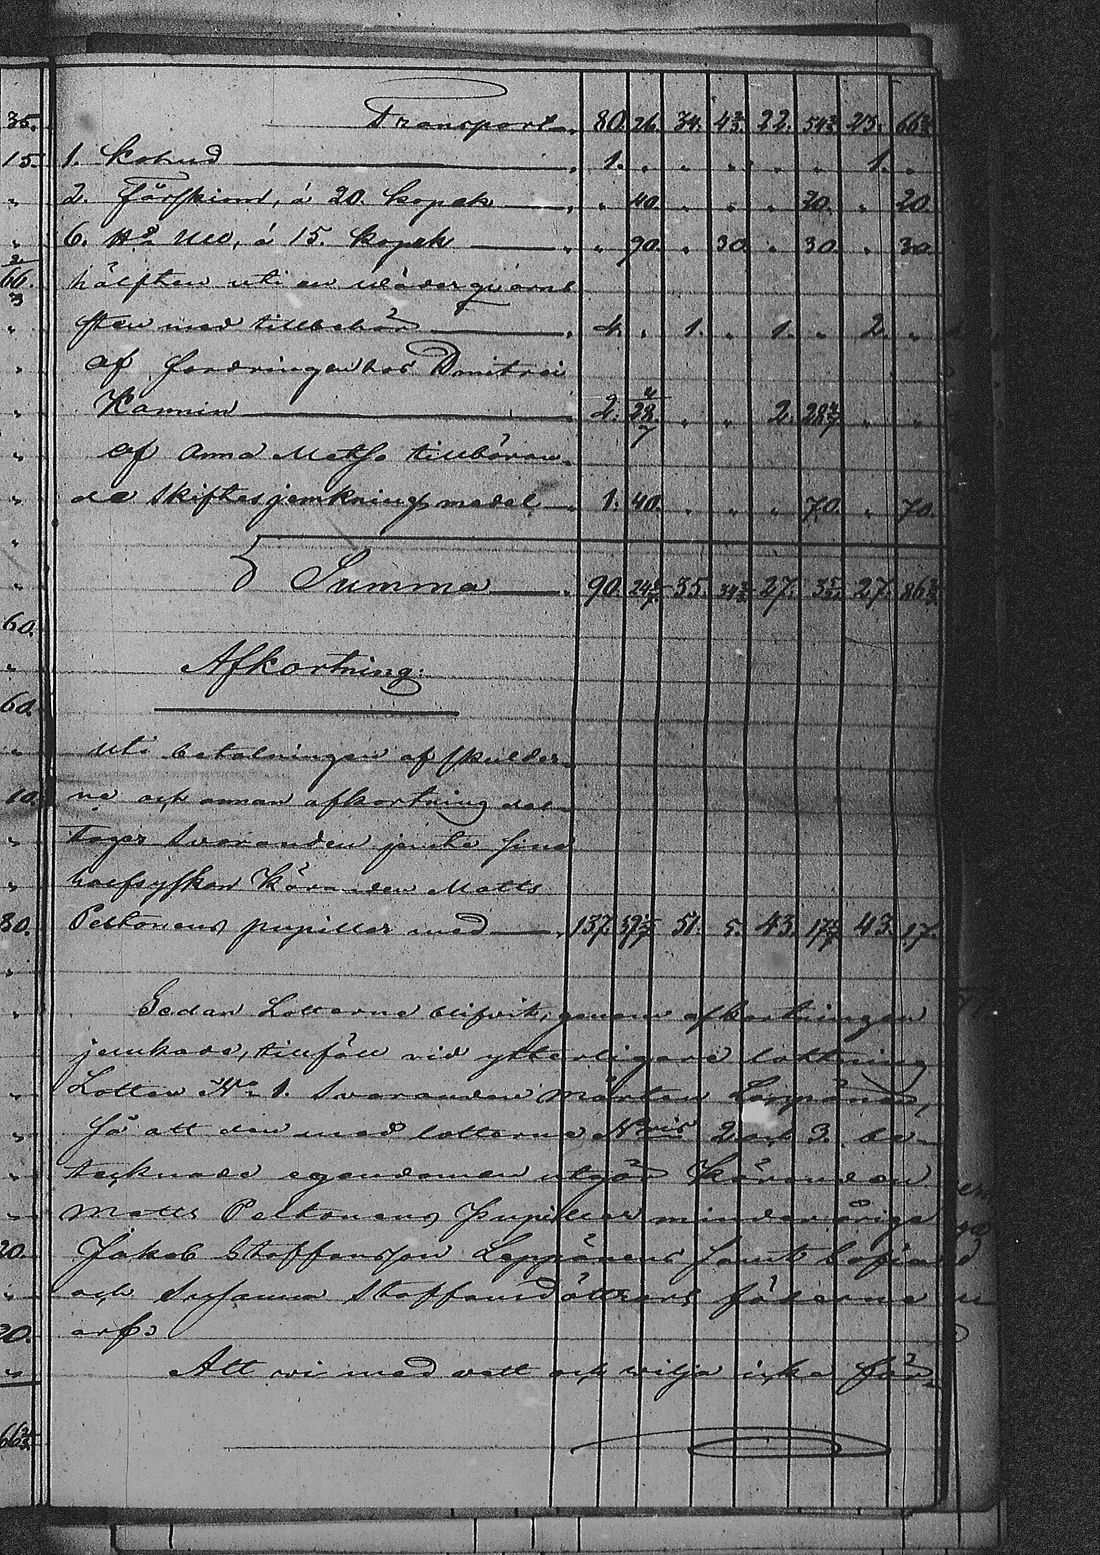 Transport 80. 26. 34. 4 2/3. 22. 54 2/3. 23. 66 2/3
1. Kohud 1. „ „ „ „ „ 1. „
2. Fårskinn, á 20. kopek „ 40. „ „ „ 20. „ 20.
6. ℔ Ull, á 15. kopek „ 90. „ 30. „ 30. „ 30.
hälften uti en väderqvarns
sten med tillbehör 4. „ 1. „ 1. „ 2. „
af fordringen hos Dmitrei
Kamnin 2. 28 4/7 „ „ 2. 28 4/7 „ „
af Anna Matsd tillböran-
de skiftesjemknings medel 1. 40. „ „ „ 70. „ 70.
Summa 90. 35. 27. 27. 86 2/3
Afkortning.
Uti betalningen af skulder-
ne och annan afkortning del-
tager Svaranden jemte sina
halfsyskon Käranden Matts
Peltonens pupiller med 137. 51. 5. 43. 43. 17.
Sedan Lotterne blifvit, genom afkortningen
jemkade, tillföll vid ytterligare lottning
Lotten N:o 1. Svaranden Mårten Leppänen,
så att den med lotterne N:ris 2 och 3. be-
tecknade egendomen utgör Käranden
Matts Peltonens Pupiller minderårige
Jakob Staffansson Leppänens samt Sofia
och Susanna Staffansdöttrars fäderne
arf.
Att vi med vett och vilja icke för-
35.
15.
66 2/3
60.
60.
10.
80.
20.
20.
66 2/3